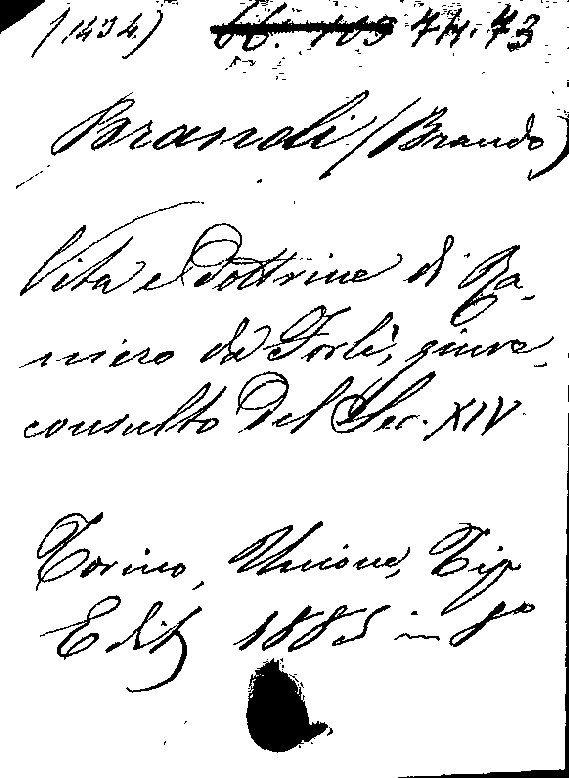 (1434) 66. 103 74.73
Brandi (Brando)
Vita e dottrine di Ra-
niero da Forlì, giure-
consulto del Sec. XIV
Torino, Unione, Tip
Edit 1885 in 8°